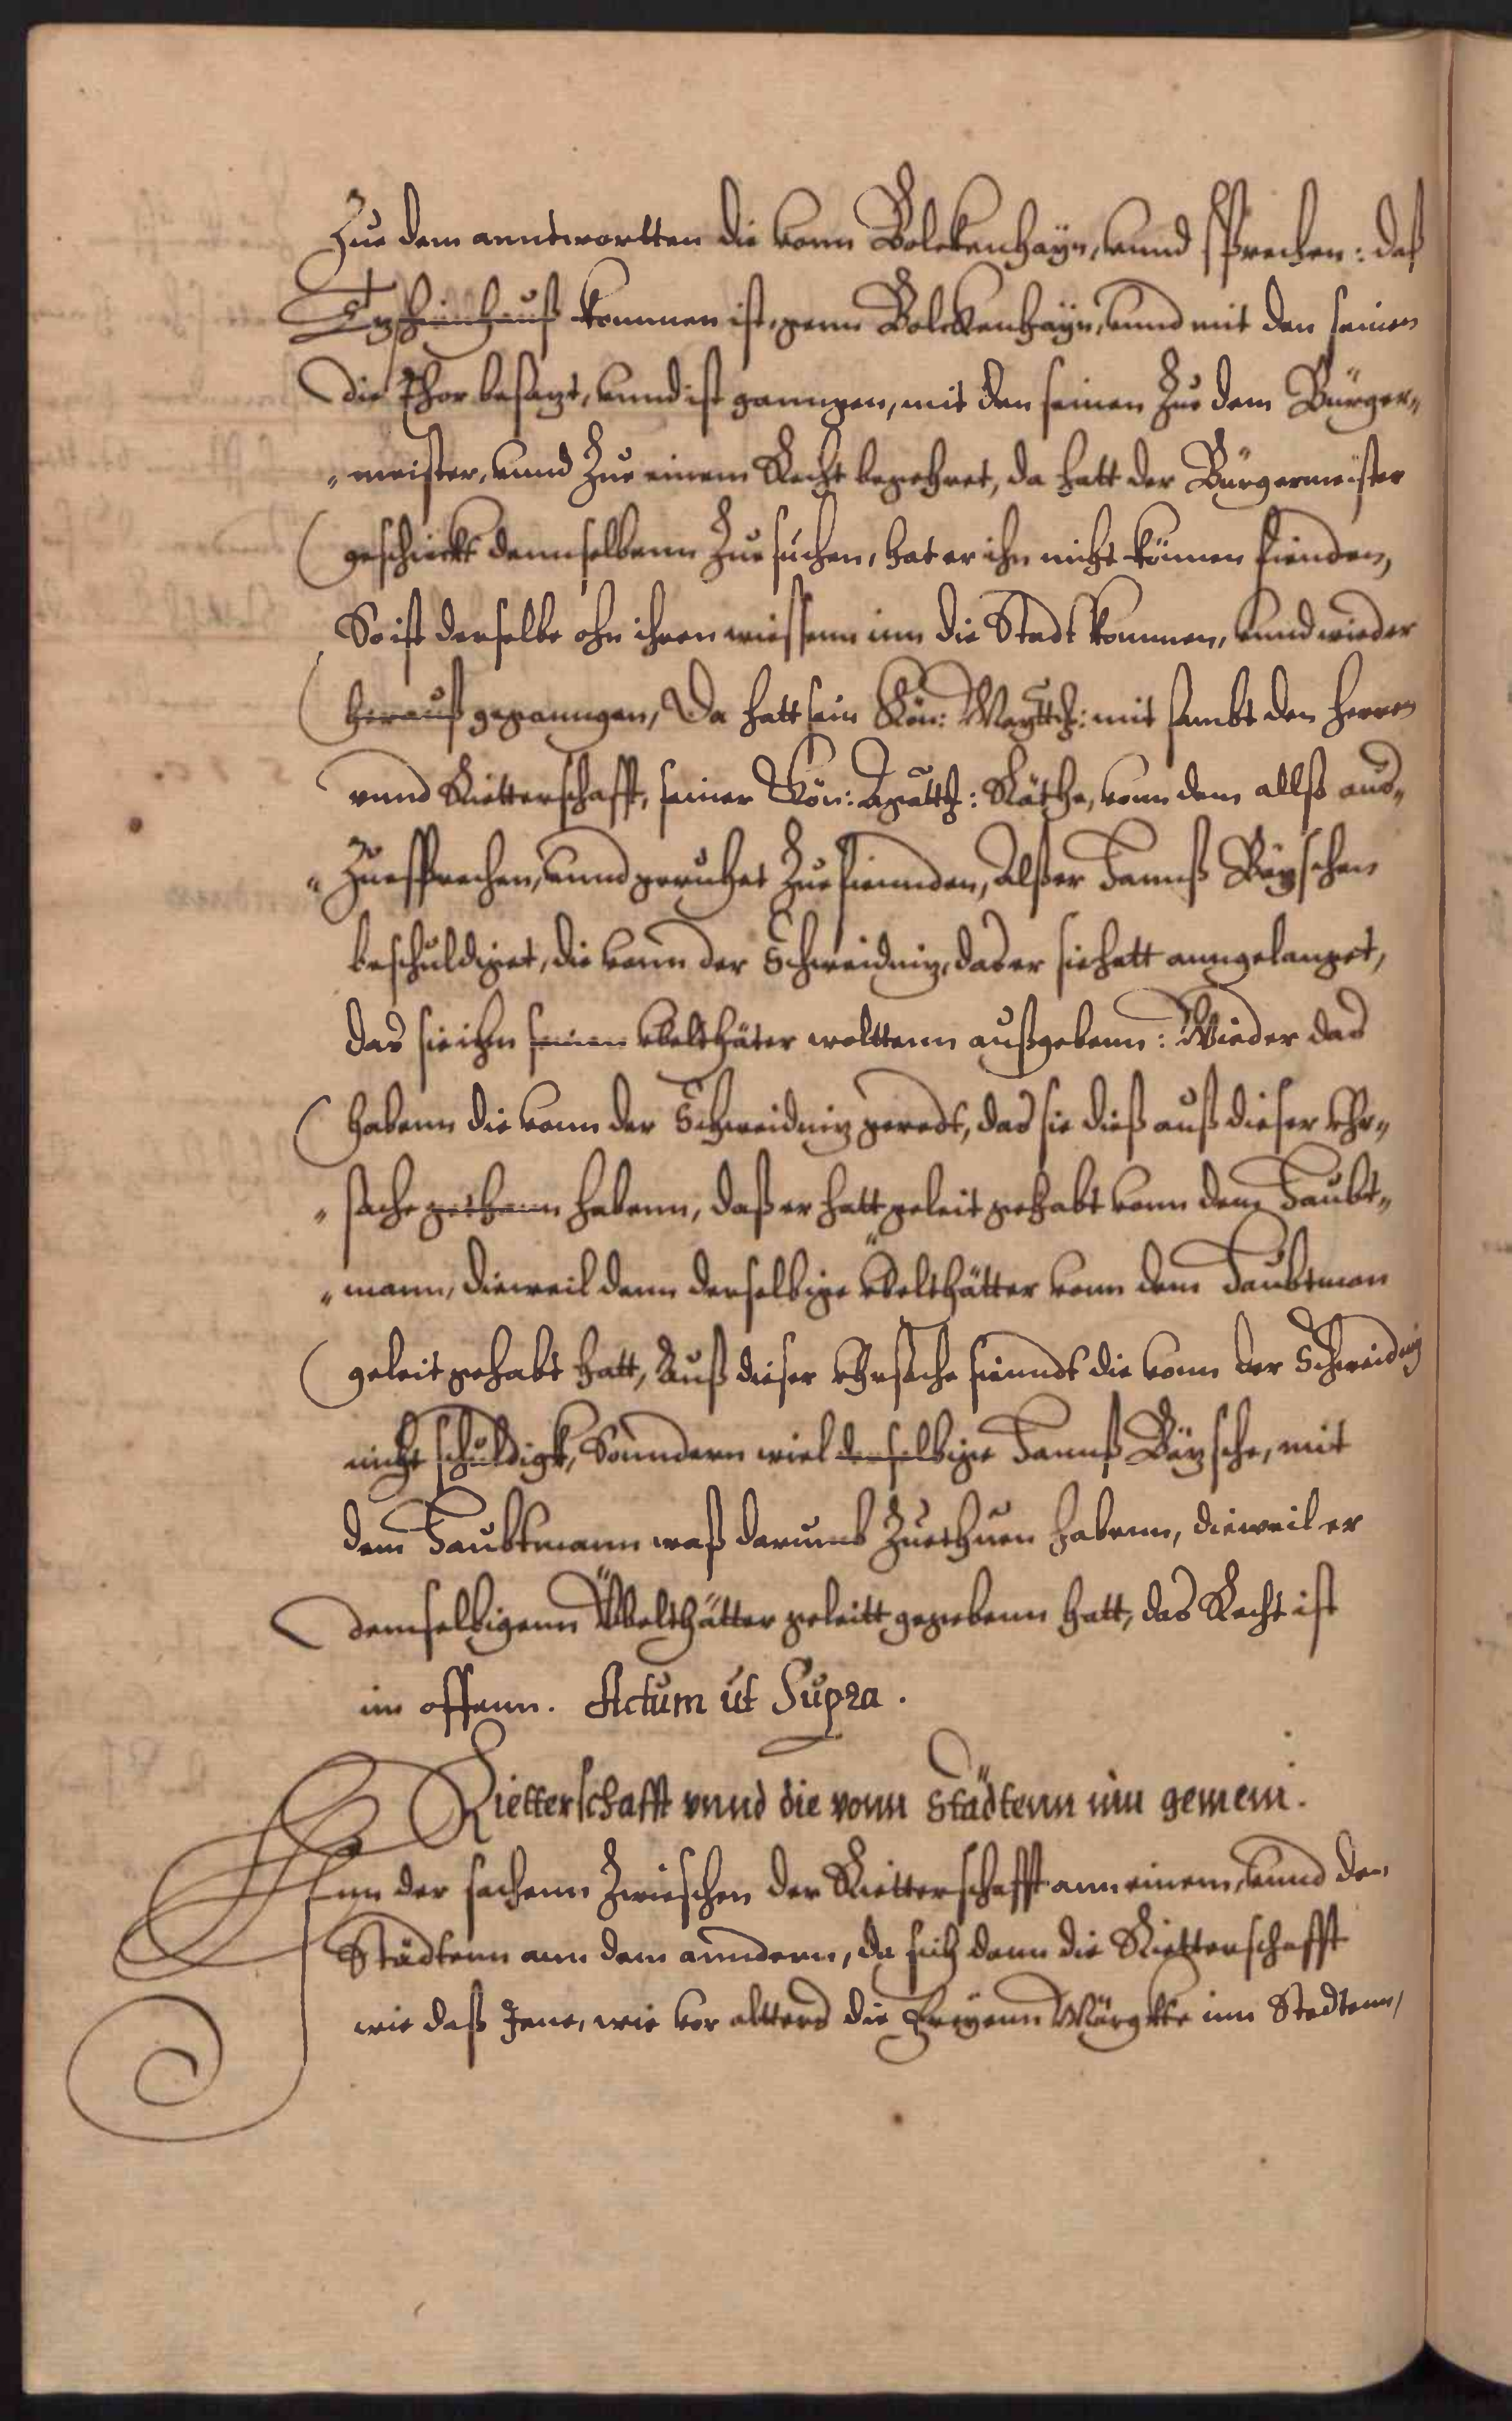 Zue dem anntwortten die vonn Bolckenhayn, vnnd sprechen: daß
Tzschirnhauß kommen ist, genn Bolckenhayn, vnnd mit den seinen
die Thor besazt, vnnd ist ganngen, mit den seinen Zue dem Bürger„
„meister, vnnd Zue einem Recht begehret, da hatt der Bürgermeister
geschickt dennselbenn Zue suchen, hat er ihn nicht können finden,
So ist derselbe ohn ihren wiessenn inn die Stadt kommen, vnnd wieder
herauß geganngen, Da hatt sein Kön: Maytt: mit sambt den Herren
vnnd Rietterschafft, seiner Kön: Maytt: Räthe, vonn dem allß aus„
„Zuesprechen, vnnd geruhet Zue fiennden, Alß er Hannß
beschuldiget, die vonn der Schweidniz, das er sie hatt anngelanget,
das sie ihn seinen vbelthäter welttenn außgebenn: Wieder das
habenn die vonn der Schweidniz geredt, das sie dieß auß dieser vhr„
„sache gethann habenn, daß er hatt geleit gehabt vonn dem Haubt„
„mann, dieweil dann derselbige übelthätter vonn dem Haubtman
geleit gehabt hatt, Auß dieser vhrsache siendt die vonn der Schweidniz
nicht schuldigk, Sonndern wiel derselbige Hannß, mit
dem Haubtmann waß darumb Zuethuen habenn, dieweil er
demselbigenn Übelthätter geleitt gegebenn hatt, das Recht ist
im offenn. Actum ut Supra.
Rietterschafft vnnd die vonn Städtenn inn gemein.
Inn der sachenn Zwieschen der Rietterschafft ann einem, vnnd den
Städtenn ann dem anndern, da sich dann die Rietterschafft
wie daß Jene, wie vor alters die freyenn Märgkte inn Stedtenn,